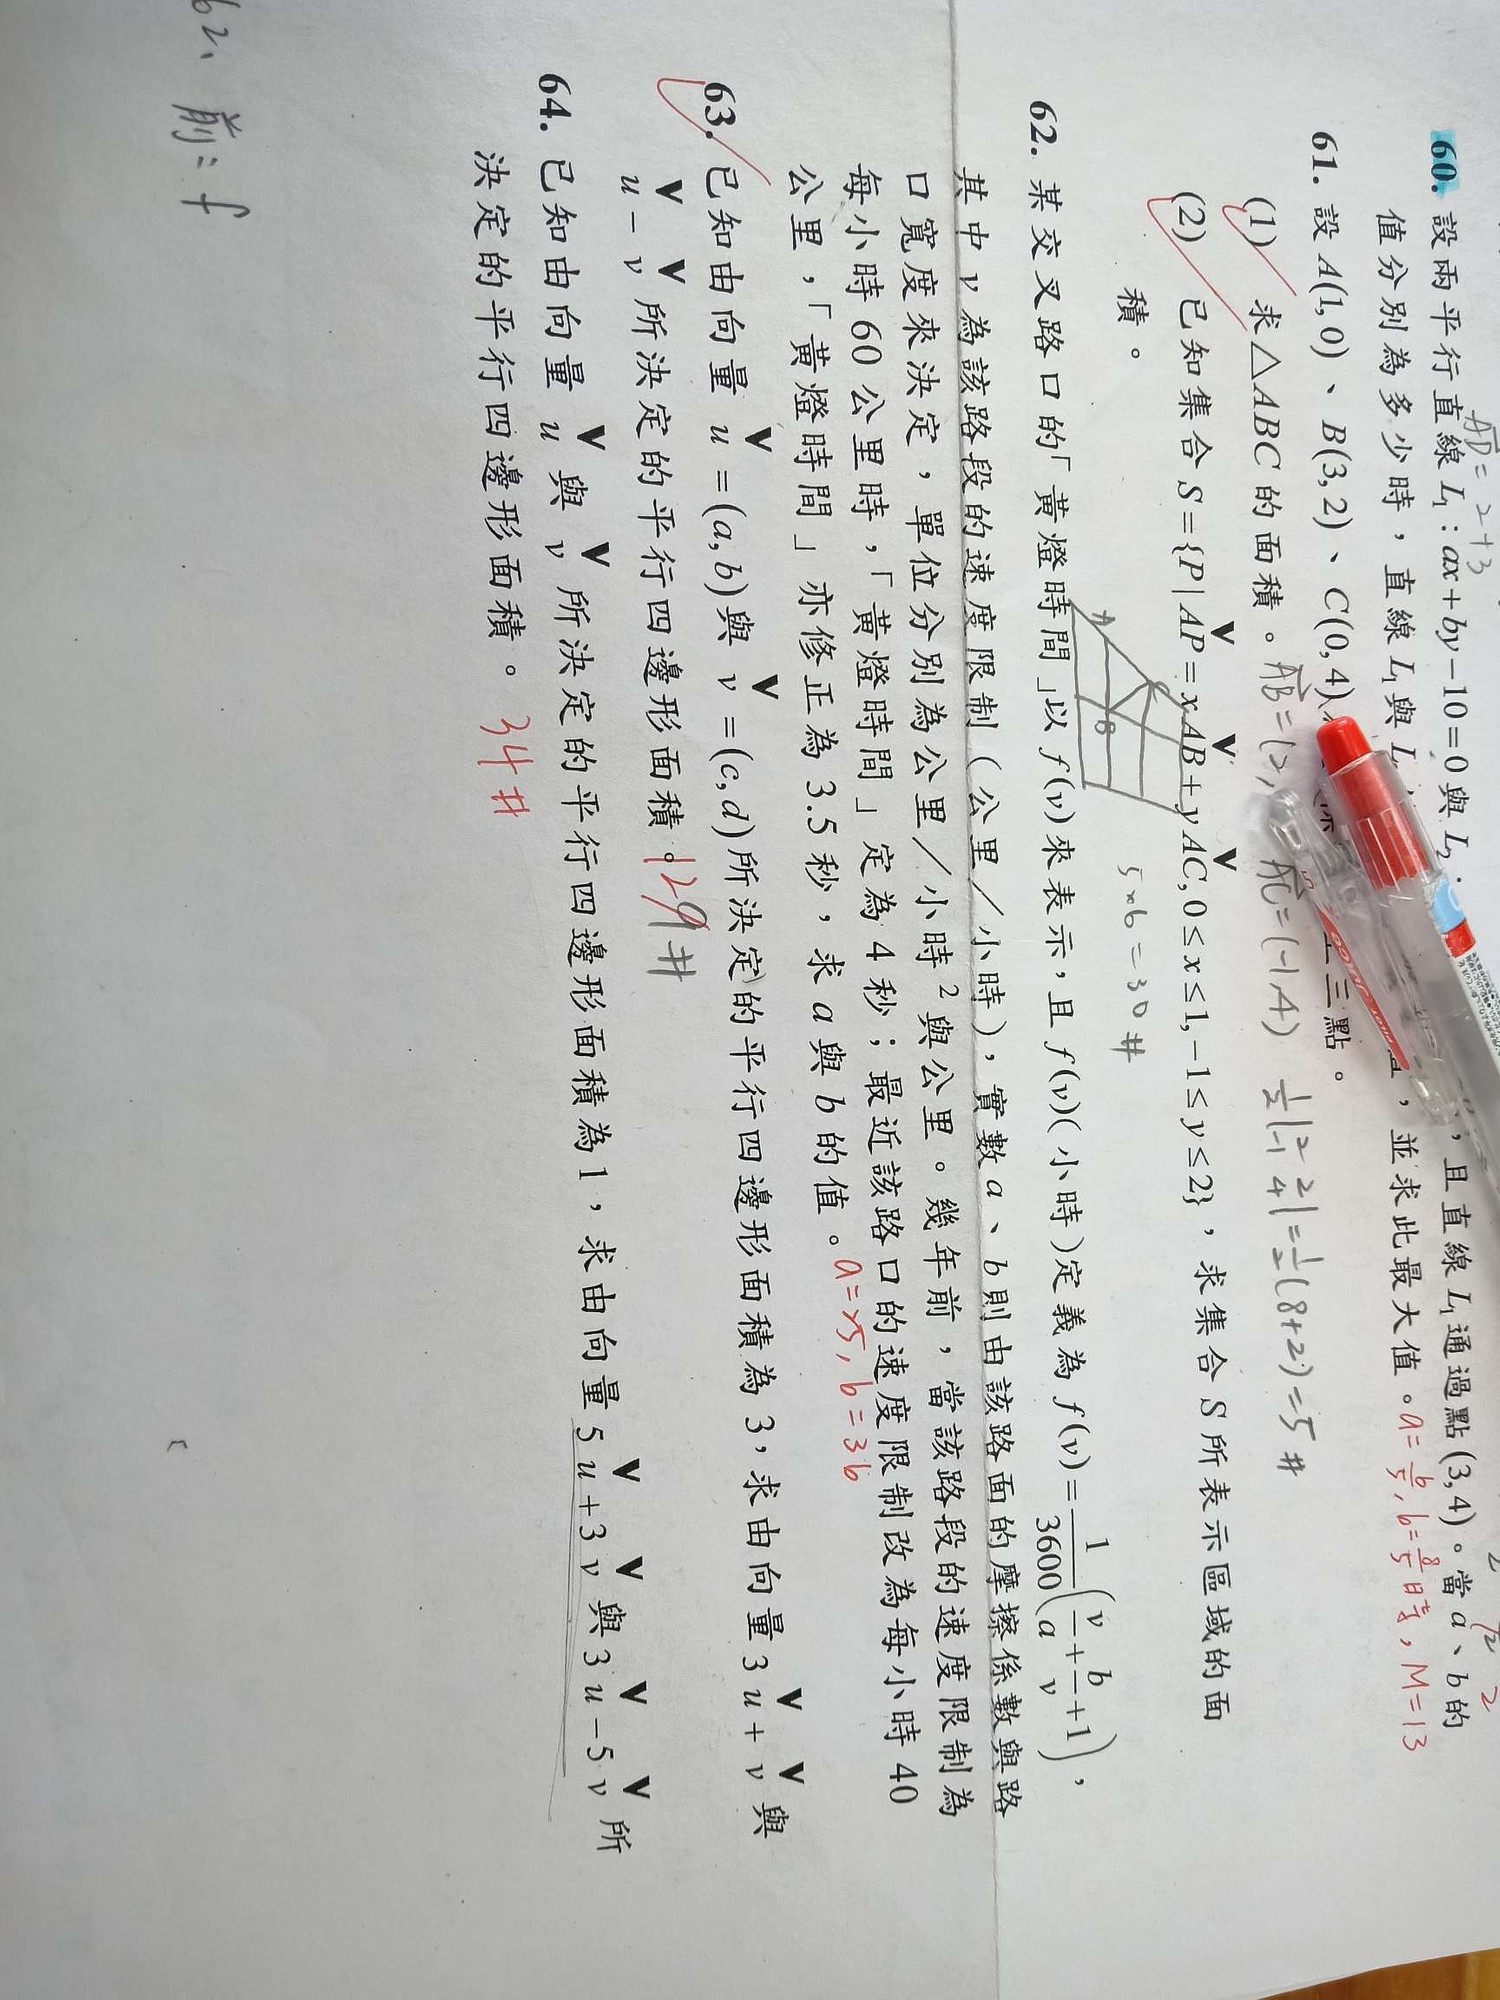 AD = 2+3
60. 設兩平行直線 L₁:ax+by−10=0與 L₂: ,且直線 L₁通過點(3,4)。當 a、b的
值分別為多少時,直線 L₁與 L ,並求此最大值。a=6/5, b=8/5時, M=13
61. 設 A(1,0)、B(3,2)、C(0,4) 三點。
(1) 求△ABC 的面積。AB=(2, AC=(-1,4) 1/2|2 2 -1 4|=1/2(8+2)=5#
(2) 已知集合 S={P|AP=xAB+yAC,0≤x≤1,−1≤y≤2},求集合 S 所表示區域的面
積。
A B C
5×6=30#
62. 某交叉路口的「黃燈時間」以 f(v)來表示,且 f(v)(小時)定義為 f(v)=1/3600(v/a+b/v+1),
其中 v 為該路段的速度限制(公里/小時),實數 a、b則由該路面的摩擦係數與路
口寬度來決定,單位分別為公里/小時²與公里。幾年前,當該路段的速度限制為
每小時60公里時,「黃燈時間」定為4秒;最近該路口的速度限制改為每小時40
公里,「黃燈時間」亦修正為3.5秒,求 a 與 b 的值。a=25, b=36
63. 已知由向量 u=(a,b)與 v=(c,d)所決定的平行四邊形面積為3,求由向量3u+v與
u−v所決定的平行四邊形面積。12#
64. 已知由向量 u 與 v 所決定的平行四邊形面積為1,求由向量5u+3v與3u−5v所
決定的平行四邊形面積。34#
62、前:f